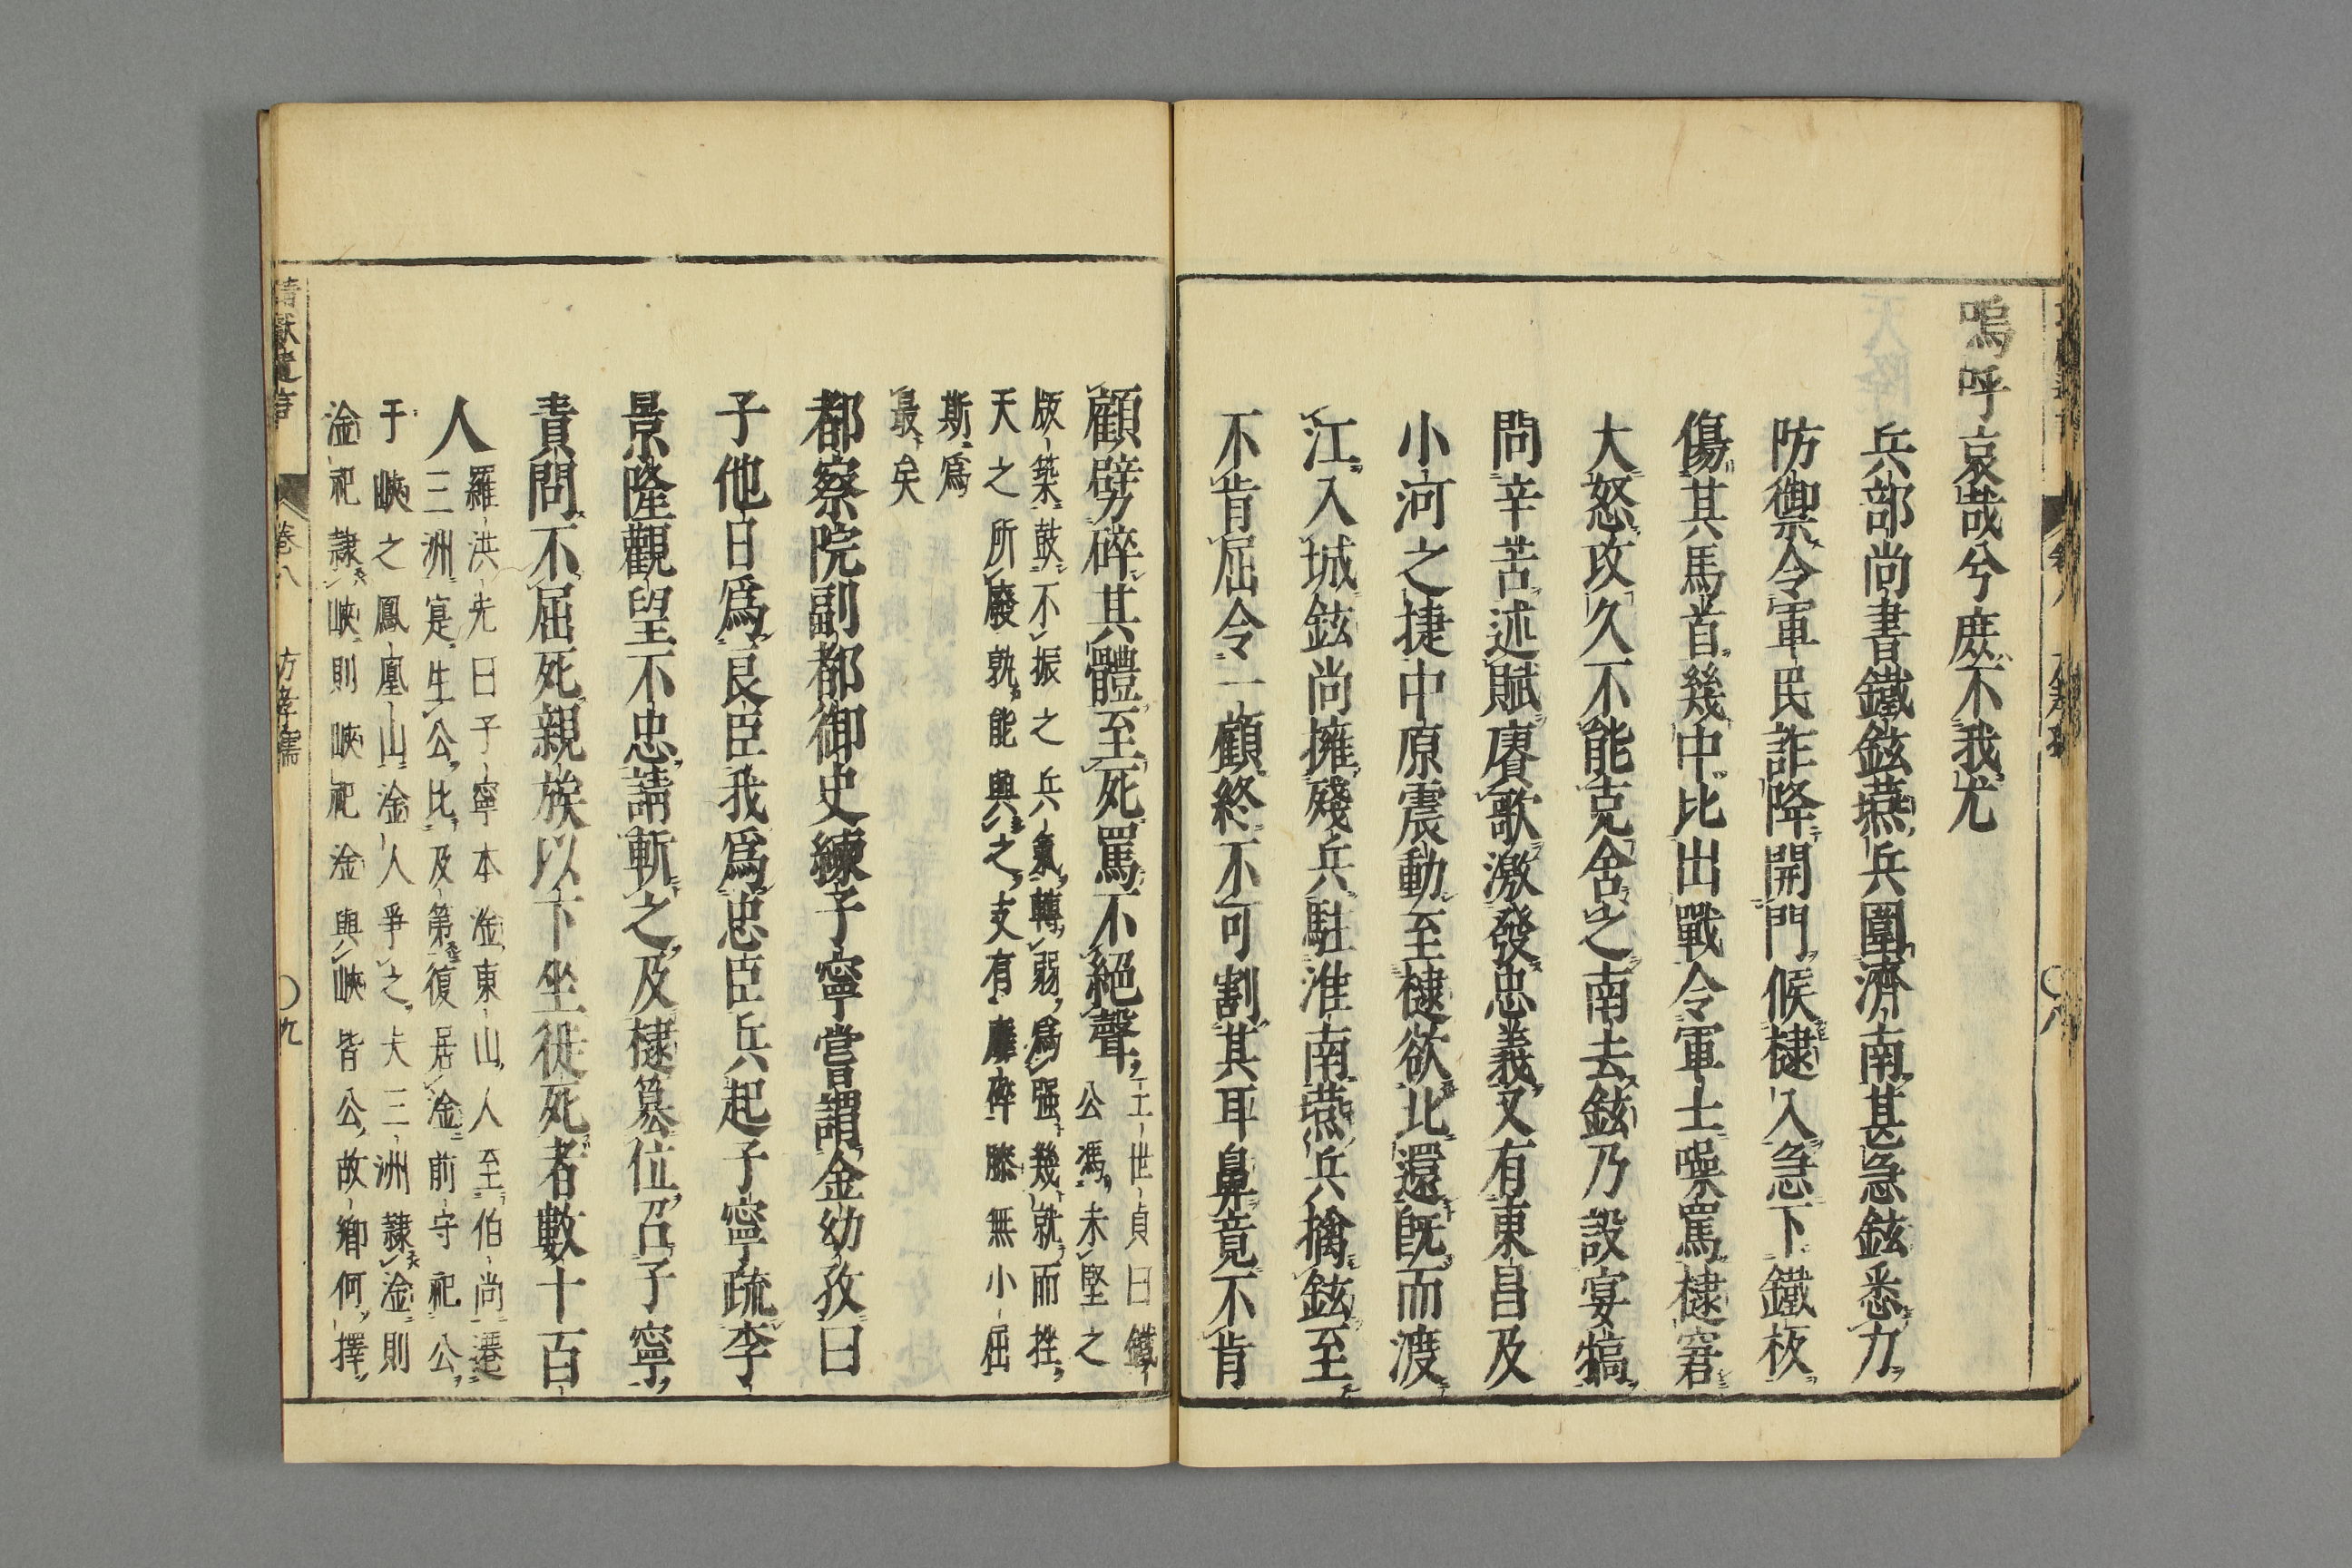 嗚呼哀哉兮庶不我尤
兵部尚書鐵鉉燕兵圍濟南甚急鉉悉力
防禦令軍民詐降開門候棣入急下鐵板
傷其馬首幾中比出戰令軍士噪罵棣窘
大怒攻久不能克舍之南去鉉乃設宴犒
問辛苦述賦賡歌激發忠義又有東昌及
小河之捷中原震動至棣欲北還既而渡
江入城鉉尚擁殘兵駐淮南燕兵擒鉉至
不肯屈令一顧終不可割其耳鼻竟不肯
顧劈碎其體至死罵不絕聲
王世貞曰鐵
公馮未堅之
版築鼓不振之兵氣轉弱爲强幾就而挫
天之所廢孰能與之支有廳碎膝無小屈
斯爲
最矣
都察院副都御史練子寧嘗謂金幼孜曰
子他日爲良臣我爲忠臣兵起子寧疏李
景隆觀望不忠請斬之及棣篡位召子寧
責問不屈死親族以下坐徙死者數十百
人
羅洪先曰子寧本淦東山人至伯尚遷
三洲寔生公比及第復居淦前守祀公
于峽之鳳凰山淦人爭之夫三洲隷淦則
淦祀隷峽則峽祀淦與峽皆公故鄉何擇
靖獻遺言
卷八
方孝孺
〇九
〇八